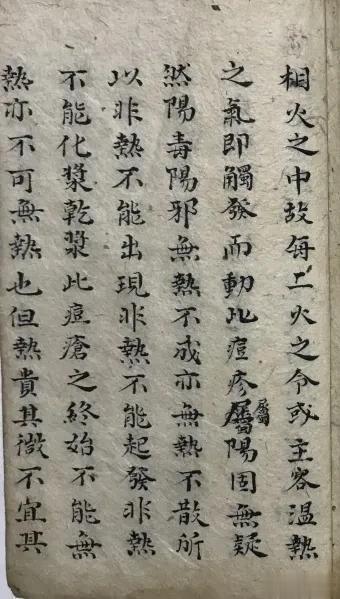 相火之中故每二火之令或主客温熱
之氣即觸發而動此痘疹屬屬陽固無疑
然陽毒陽邪無熱不成亦無熱不散所
以非熱不能出現非熱不能起發非熱
不能化漿乾漿此痘瘡之終始不能無
熱亦不可無熱也但熱貴其微不宜其